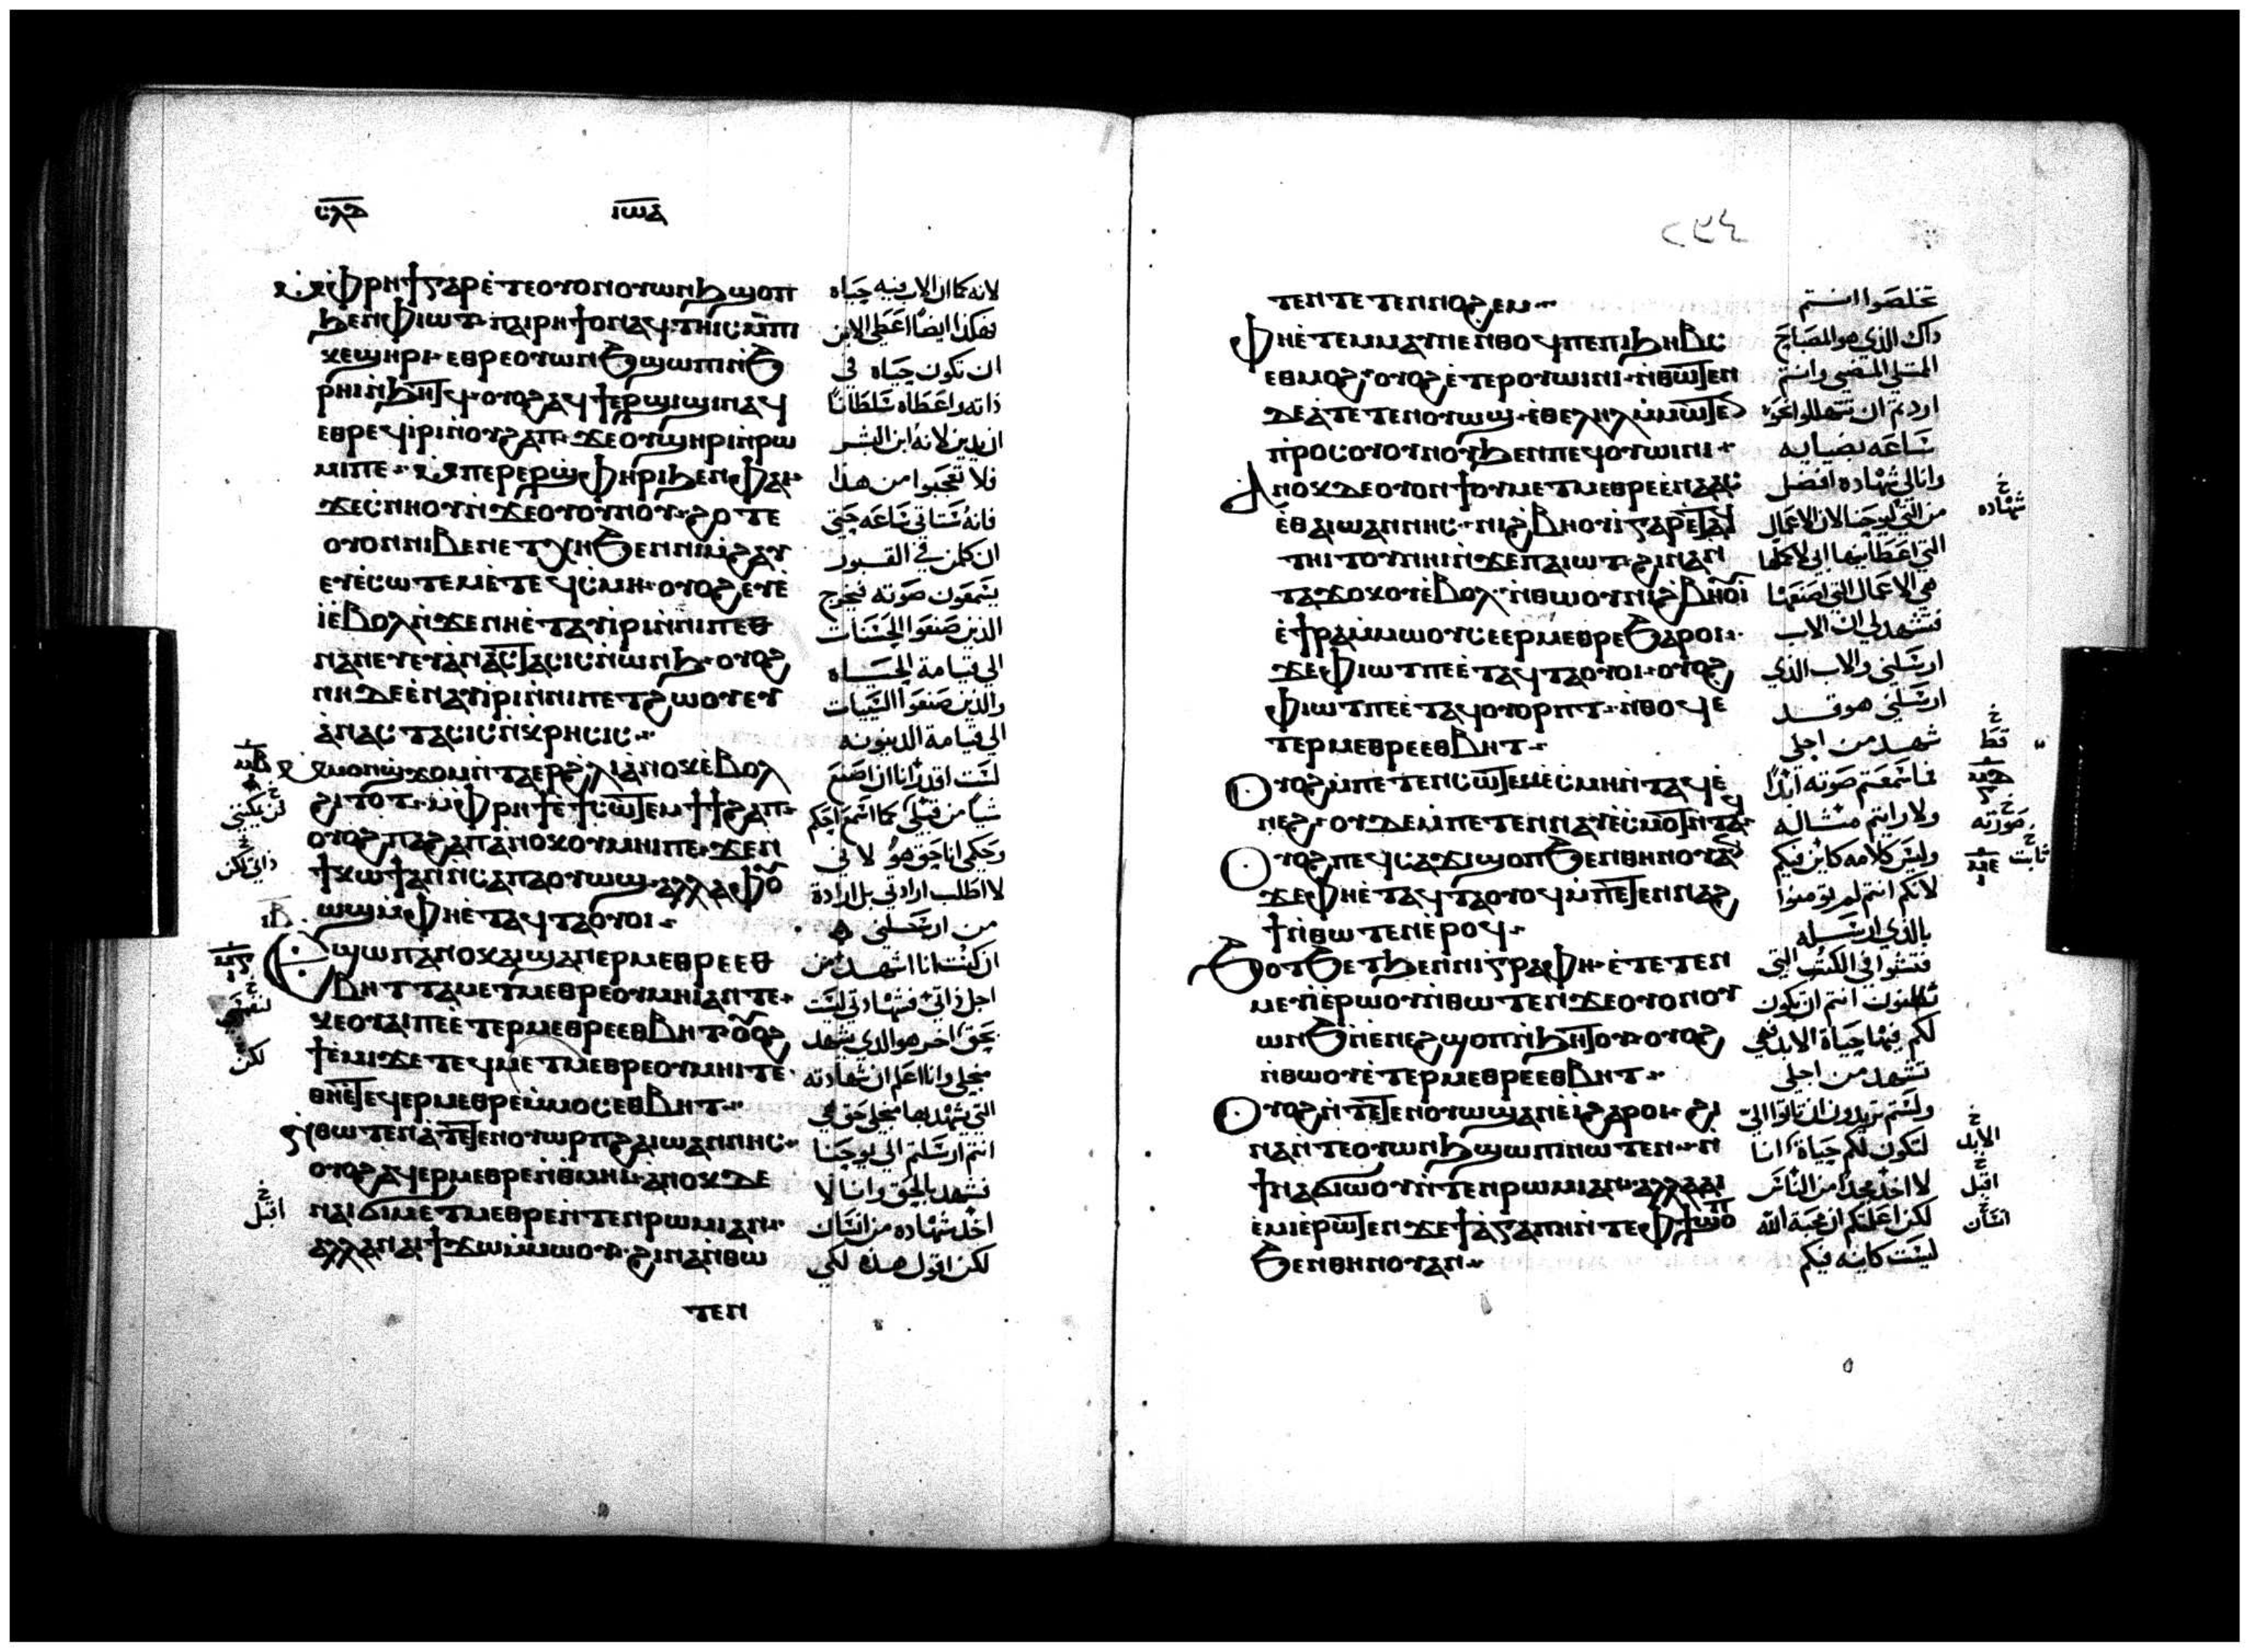 ⲥⲗⲇ ⲓⲱⲁ
ⲙ̀ⲫⲣⲏϯ ⲅⲁⲣ ⲉ̀ⲧⲉ ⲟⲩⲟⲛ ⲟⲩⲱⲛϧ ϣⲟⲡ
ϧⲉⲛ ⲫⲓⲱⲧ ⲡⲁⲓⲣⲏϯ ⲟⲛ ⲁϥⲧⲏⲓⲥ ⲙ̀ⲡⲓ
ⲕⲉϣⲏⲣⲓ ⲉⲑⲣⲉ ⲟⲩⲱⲛϧ ϣⲱⲡⲓ ⲛ̀ϧ
ⲣⲏⲓ ⲛ̀ϧⲏⲧϥ ⲟⲩⲟϩ ⲁϥϯⲉⲣϣⲓϣⲓ ⲛⲁϥ
ⲉⲑⲣⲉϥⲓ̀ⲣⲓ ⲛ̀ⲟⲩϩⲁⲡ ϫⲉ ⲟⲩϣⲏⲣⲓ ⲛ̀ⲣⲱ
ⲙⲓ ⲡⲉ ⲙ̀ⲡⲉⲣⲉⲣϣⲫⲏⲣⲓ ϧⲉⲛ ⲫⲁⲓ
ϫⲉ ⲥ̀ⲛⲏⲟⲩ ⲛ̀ϫⲉ ⲟⲩⲟⲩⲛⲟⲩ ϩⲟⲧⲉ
ⲟⲩⲟⲛ ⲛⲓⲃⲉⲛ ⲉⲧⲭⲏ ϧⲉⲛ ⲛⲓⲙ̀ϩⲁⲩ
ⲉⲩⲉ̀ⲥⲱⲧⲉⲙ ⲉ̀ⲧⲉϥⲥ̀ⲙⲏ ⲟⲩⲟϩ ⲉⲩⲉ̀
ⲓ̀ ⲉ̀ⲃⲟⲗ ⲛ̀ϫⲉ ⲛⲏⲉ̀ⲧⲁⲩⲓⲣⲓ ⲛ̀ⲛⲓⲡⲉⲑ
ⲛⲁⲛⲉⲩ ⲉⲩⲁ̀ⲛⲁⲥⲧⲁⲥⲓⲥ ⲛ̀ⲱⲛϧ ⲟⲩⲟϩ
ⲛⲏ ⲇⲉ ⲉ̀ⲛⲁⲩⲓ̀ⲣⲓ ⲛ̀ⲛⲓⲡⲉⲧϩⲱⲟⲩ ⲉⲩ
ⲁ̀ⲛⲁⲥⲧⲁⲥⲓⲥ ⲛ̀ⲕⲣⲏⲥⲓⲥ
ⲙ̀ⲙⲟⲛ ϣϫⲟⲙ ⲛ̀ⲧⲁⲉⲣϩⲗⲓ ⲁⲛⲟⲕ ⲉ̀ⲃⲟⲗ
ϩⲓⲧⲟⲧ ⲙ̀ⲫⲣⲏϯ ⲉ̀ϯⲥⲱⲧⲉⲙ ϯϯϩⲁⲡ
ⲟⲩⲟϩ ⲡⲁϩⲁⲡ ⲁ̀ⲛⲟⲕ ⲟⲩⲙⲏⲓ ⲡⲉ ϫⲉ ⲛ
ϯⲕⲱϯ ⲁⲛ ⲛ̀ⲥⲁ ⲡⲁⲟⲩⲱϣ ⲁⲗⲗⲁ ⲫⲟⲩ
ⲱϣ ⲙ̀ⲫⲏⲉ̀ⲧⲁϥⲧⲁⲟⲩⲟⲓ
ⲉϣⲱⲡ ⲁⲛⲟⲕ ⲁⲓϣⲁⲛⲉⲣⲙⲉⲑⲣⲉ ⲉⲑ
ⲃⲏⲧ ⲧⲁⲙⲉⲧⲙⲉⲑⲣⲉ ⲟⲩⲙⲏⲓ ⲁⲛ ⲧⲉ
ⲕⲉⲟⲩⲁⲓ ⲡⲉ ⲉ̀ⲧⲉⲣⲙⲉⲑⲣⲉ ⲉⲑⲃⲏⲧ ⲟⲩⲟϩ
ϯⲉ̀ⲙⲓ ϫⲉ ⲧⲉϥⲙⲉⲧⲙⲉⲑⲣⲉ ⲟⲩⲙⲏⲓ ⲧⲉ
ⲑⲏⲉ̀ⲧⲉϥⲉⲣⲙⲉⲑⲣⲉ ⲙ̀ⲙⲟⲥ ⲉⲑⲃⲏⲧ
ⲛ̀ⲑⲱⲧⲉⲛ ⲁ̀ⲧⲉⲧⲉⲛⲟⲩⲱⲣⲡ ϩⲁ ⲓⲱⲁⲛⲛⲏⲥ
ⲟⲩⲟϩ ⲁϥⲉⲣⲙⲉⲑⲣⲉ ⲛ̀ⲑⲙⲏⲓ ⲁⲛⲟⲕ ⲇⲉ
ⲛⲁⲓϭⲓⲙⲉⲧⲙⲉⲑⲣⲉ ⲛ̀ⲧⲉⲛ ⲣⲱⲙⲓ ⲁⲛ
ⲁⲗⲗⲁ ⲛⲁⲓ ϯϫⲱ ⲙ̀ⲙⲱⲟⲩ ϩⲓⲛⲁ ⲛ̀ⲑⲱ
ⲧⲉⲛ
لانه كما ان الاب فيه حياه
هكذا ايضا اعطى الابن
ان تكون حياه في
ذاته واعطاه سلطانا
ان يدين لانه ابن البشر
فلا تعجبوا من هذا
فانه ستاتي ساعه حتى
ان كلمن في القبور
يسمعون صوته فيخرج
الذين صنعوا الحسنات
الي قيامة الحياه
والذين صنعوا السيات
الي قيامة الدينونه
لست اقدر انا ان اصنع
شيا من قبلي كما اسمع احكم
وحكمي انا حق هو لاني
لا اطلب ارادتي بل ارادة
من ارسلني
ان كنت انا اشهد من
اجل ذاتي فشهادتي لست
بحق اخر هو الذي يشهد
منجلي وانا اعلم ان شهادته
التي شهد بها منجلي حق هي
انتم ارسلتم الي يوحنا
فشهد بالحق وانا لا
اخذ شهاده من انسان
لكن اقول هذه لكي
لكن
اقبل
ⲧⲉⲛⲧⲉⲧⲉⲛⲛⲟϩⲉⲙ
ⲫⲏⲉ̀ⲧⲉⲙⲙⲁⲩ ⲛⲉ ⲛ̀ⲑⲟϥ ⲡⲉ ⲡⲓϧⲏⲃⲥ
ⲉⲑⲙⲟϩ ⲟⲩⲟϩ ⲉ̀ⲧⲉⲣⲟⲩⲱⲓⲛⲓ ⲛ̀ⲑⲱⲧⲉⲛ
ⲇⲉ ⲁ̀ⲧⲉⲧⲉⲛⲟⲩⲱϣ ⲉ̀ⲑⲉⲗⲏⲗ ⲙ̀ⲙⲱⲧⲉⲛ
ⲡⲣⲟⲥ ⲟⲩⲟⲩⲛⲟⲩ ϧⲉⲛ ⲡⲉϥⲟⲩⲱⲓⲛⲓ
ⲁⲛⲟⲕ ⲇⲉ ⲟⲩⲟⲛϯ ⲟⲩⲙⲉⲧⲙⲉⲑⲣⲉ ⲉⲛⲁⲁⲥ
ⲉ̀ⲑⲁ ⲓⲱⲁⲛⲛⲏⲥ ⲛⲓϩⲃⲏⲟⲩⲓ̀ ⲅⲁⲣ ⲉ̀ⲧⲁϥ
ⲧⲏⲓⲧⲟⲩ ⲛⲏⲓ ⲛ̀ϫⲉ ⲡⲁⲓⲱⲧ ϩⲓⲛⲁ ⲛ
ⲧⲁϫⲟⲕⲟⲩ ⲉ̀ⲃⲟⲗ ⲛ̀ⲑⲱⲟⲩ ⲛⲓϩⲃⲏⲟⲩⲓ̀
ⲉ̀ϯⲣⲁ ⲙ̀ⲙⲱⲟⲩ ⲥⲉⲉⲣⲙⲉⲑⲣⲉ ϧⲁⲣⲟⲓ
ϫⲉ ⲫⲓⲱⲧ ⲡⲉ ⲉ̀ⲧⲁϥⲧⲁⲟⲩⲟⲓ ⲟⲩⲟϩ
ⲫⲓⲱⲧ ⲡⲉ ⲉ̀ⲧⲁϥⲟⲩⲟⲣⲡⲧ ⲛ̀ⲑⲟϥ ⲉ
ⲧⲉⲣⲙⲉⲑⲣⲉ ⲉⲑⲃⲏⲧ
ⲟⲩⲟϩ ⲙ̀ⲡⲉⲧⲉⲛⲥⲱⲧⲉⲙ ⲉ̀ⲥ̀ⲙⲏ ⲛ̀ⲧⲁϥ ⲉ̀
ⲛⲉϩ ⲟⲩⲇⲉ ⲙ̀ⲡⲉⲧⲉⲛⲛⲁⲩ ⲉ̀ⲥⲙⲟⲧ ⲛ̀ⲧⲁϥ
ⲟⲩⲟϩ ⲡⲉϥⲥⲁϫⲓ ϣⲟⲡ ϧⲉⲛ ⲑⲏⲛⲟⲩ ⲁⲛ
ϫⲉ ⲫⲏⲉ̀ⲧⲁϥⲧⲁⲟⲩⲟϥ ⲙ̀ⲡⲉⲧⲉⲛⲛⲁϩ
ϯ ⲛ̀ⲑⲱⲧⲉⲛ ⲉ̀ⲣⲟϥ
ϧⲟⲧϧⲉⲧ ϧⲉⲛ ⲛⲓⲅⲣⲁⲫⲏ ⲉ̀ⲧⲉⲧⲉⲛ
ⲙⲉⲩⲓ̀ ⲉⲣⲱⲟⲩ ⲛ̀ⲑⲱⲧⲉⲛ ϫⲉ ⲟⲩⲟⲛ ⲟⲩ
ⲱⲛϧ ⲛ̀ⲉⲛⲉϩ ϣⲟⲡ ⲛ̀ϧⲏⲧⲟⲩ ⲟⲩⲟϩ
ⲛ̀ⲑⲱⲟⲩ ⲉ̀ⲧⲉⲣⲙⲉⲑⲣⲉ ⲉⲑⲃⲏⲧ
ⲟⲩⲟϩ ⲛ̀ⲧⲉⲧⲉⲛⲟⲩⲱϣ ⲁⲛ ⲉ̀ⲓ̀ ϩⲁⲣⲟⲓ ϩⲓ
ⲛⲁ ⲛ̀ⲧⲉ ⲟⲩⲱⲛϧ ϣⲱⲡⲓ ⲛⲱⲧⲉⲛ ⲛ
ϯⲛⲁϭⲓⲱⲟⲩ ⲛ̀ⲧⲉⲛ ⲣⲱⲙⲓ ⲁⲛ ⲁⲗⲗⲁ ⲁⲓ
ⲉ̀ⲙⲓ ⲉⲣⲱⲧⲉⲛ ϫⲉ ϯⲁ̀ⲅⲁⲡⲏ ⲛ̀ⲧⲉ ⲫϯ ϣⲟⲡ
ϧⲉⲛ ⲑⲏⲛⲟⲩ ⲁⲛ
تخلصوا انتم
ذاك الذي هو المصباح
الممتلي المضيي وانتم
اردتم ان تتهللوا نحو
ساعه بضيايه
وانا لي شهاده افضل
من التي ليوحنا لان الاعمال
التي اعطانيها ابي لاكملها
هي الاعمال التي اصنعها
فتشهد لي ان الاب
ارسلني والاب الذي
ارسلني هو قد
شهد من اجلي
فما سمعتم صوته ابدا
ولا رايتم مثاله
وليس كلامه كاين فيكم
لانكم انتم لم تومنوا
بالذي ارسله
فتشوا في الكتب التي
تظنون انتم ان يكون
لكم فيها حياة الابد فهي
تشهد من اجلي
ولستم تريدون ان تاتوا الي
لتكون لكم حياة انا
لا اخذ مجدا من الناس
لكن اعلمتكم ان محبة الله
ليست كاينه فيكم
شهاده
قط
صورته
ثابت
الابد
اقبل
انسان